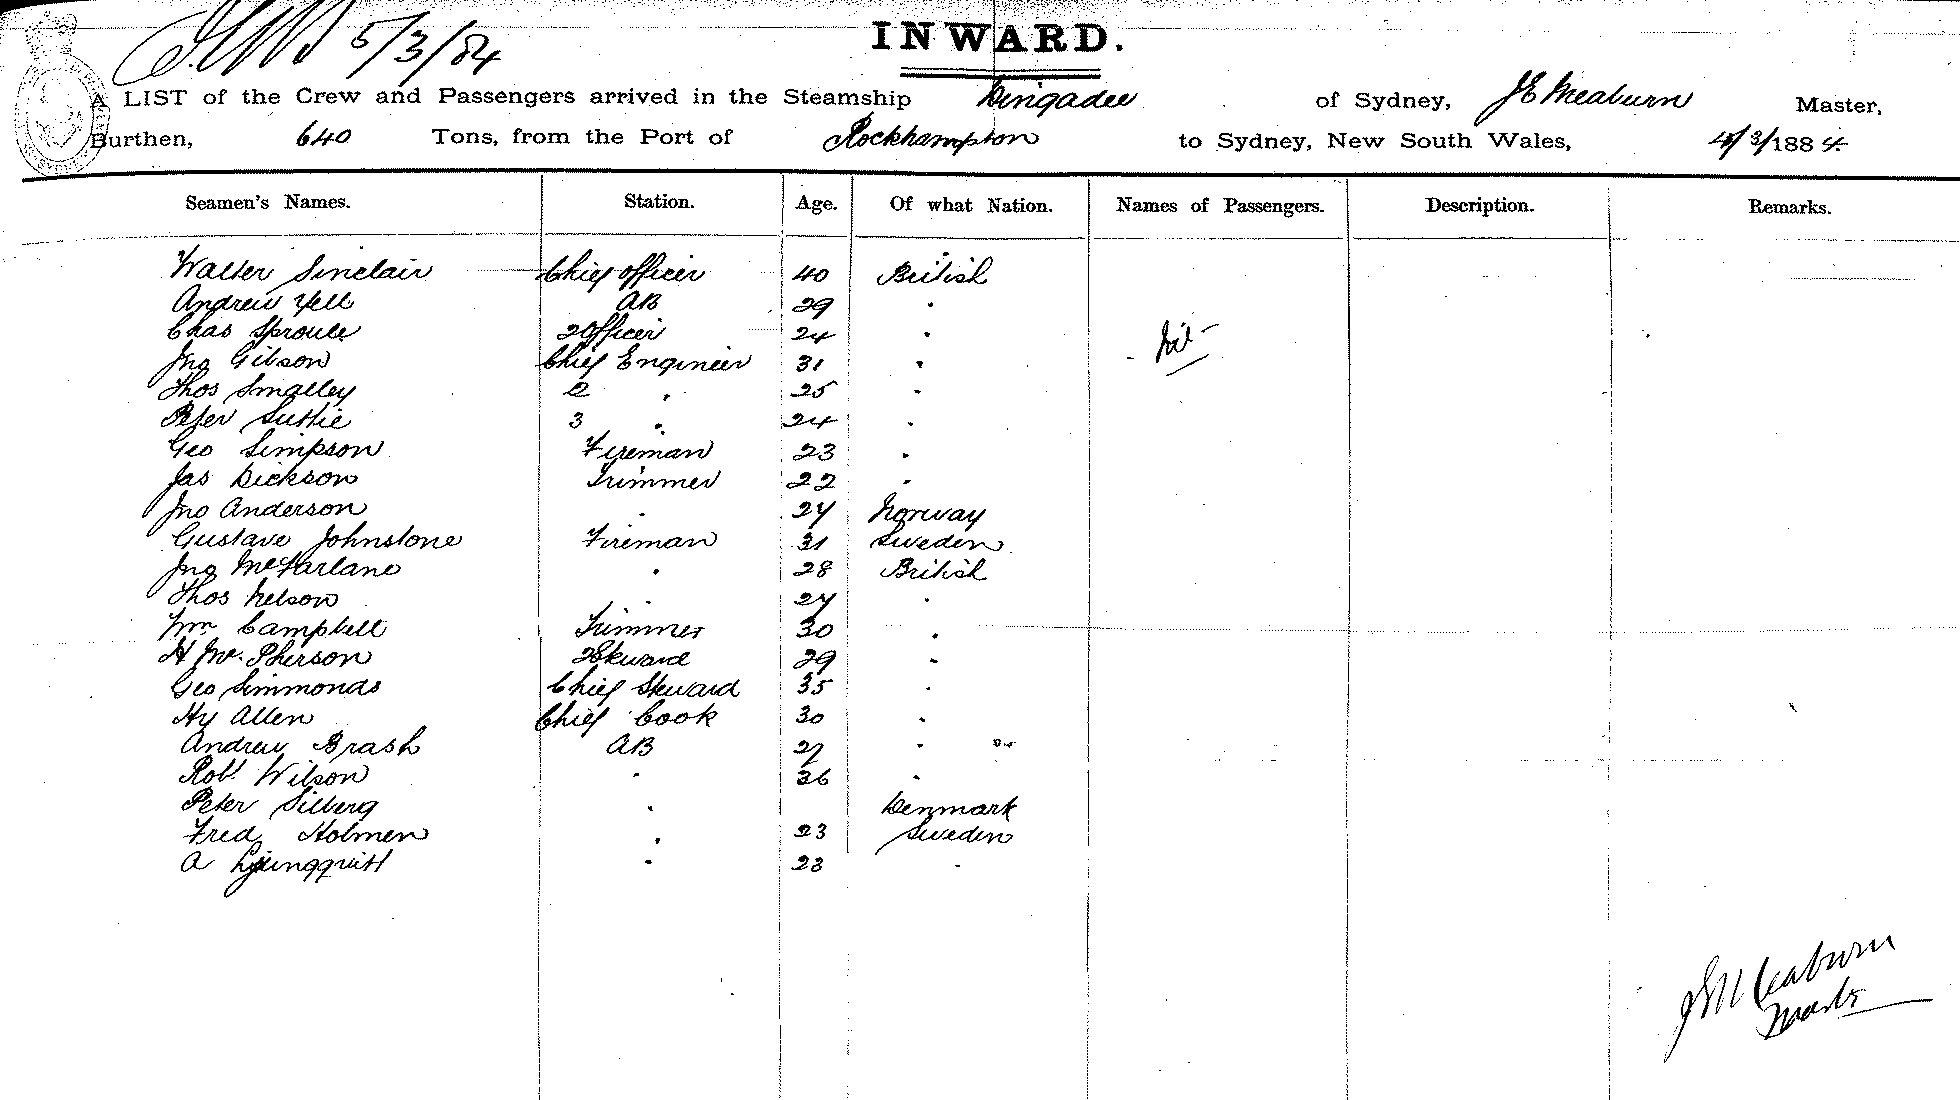 5/3/84
INWARD.
A LIST of the Crew and Passengers arrived in the Steamship Dingadee of Sydney, JE Meaburn Master,
Burthen, 640 Tons, from the Port of Rockhampton to Sydney, New South Wales, 4/3/1884.
Seamen's Names. Station. Age. Of what Nation. Names of Passengers. Description. Remarks.
Walter Sinclair Chief Officer 40 British
Andrew Yell AB 29 "
Chas Sproule 2 Officer 24 "
Nil
Jno Gibson Chief Engineer 31 "
Thos Smalley 2 " 25 "
Peter Suttie 3 " 24 "
Geo Simpson Fireman 23 "
Jas Dickson Trimmer 22 "
Jno Anderson " 24 Norway
Gustave Johnstone Fireman 31 Sweden
Jno McFarlane " 28 British
Thos Nelson " 24 "
Wm Campbell Trimmer 30 "
H McPherson 2 Steward 29 "
Geo Simmonds Chief Steward 35 "
Hy Allen Chief Cook 30 "
Andrew Brash AB 27 "
Robt Wilson " 36 "
Peter Silberg " Denmark
Fred Holmen " 23 Sweden
A " 23 "
JE Meaburn
Master